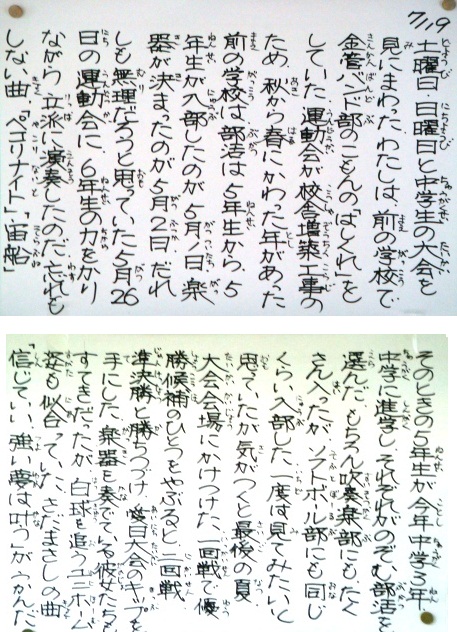 7/19
土曜日、日曜日と中学生の大会を
見にまわった。わたしは、前の学校で
金管バンド部のこもんの「はしくれ」を
していた。運動会が校舎増築工事の
ため、秋から春にかわった年があった。
前の学校は、部活は5年生から。5
年生が入部したのが5月1日、楽
器が決まったのが5月2日。だれ
しも無理だろうと思っていた5月26
日の運動会に、6年生の力をかり
ながら、立派に演奏したのだ。忘れも
しない曲、「ペコリナイト」「宙船」
そのときの5年生が今年中学3年。
中学に進学し、それぞれがのぞむ部活を
選んだ。もちろん吹奏楽部にも、たく
さん入ったが、ソフトボール部にも同じ
くらい入部した。一度は見てみたいと
思っていたが、気がつくと最後の夏。
大会会場にかけつけた。一回戦で優
勝候補のひとつをやぶると、二回戦、
準決勝と勝ちつづけ、愛日大会のキップを
手にした。楽器を奏でている彼女たちも
すてきだったが、白球を追うユニホーム
姿も似合っていた。さだまさしの曲
「信じていい 強い夢は叶う」がうかんだ